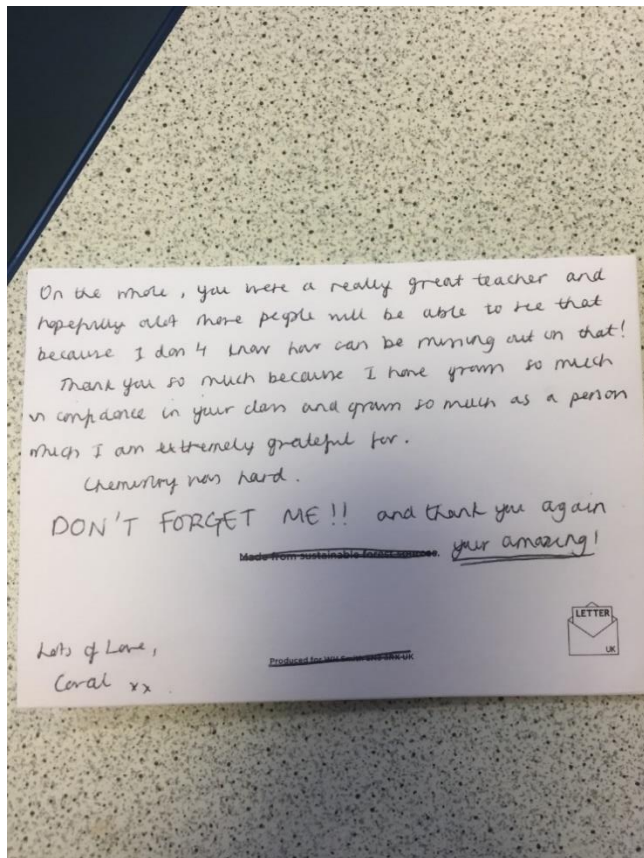 On the whole, you were a really great teacher and
hopefully alot more people will be able to see that
because I don't know how can be missing out on that!
Thank you so much because I have grown so much
in confidence in your class and grown so much as a person
which I am extremely grateful for.
Chemistry was hard.
DON'T FORGET ME!! and thank you again
Made from sustainable forest sources. your amazing!
LETTER
UK
Lots of Love,
Produced for WH Smith SN3 3RX UK
Coral xx